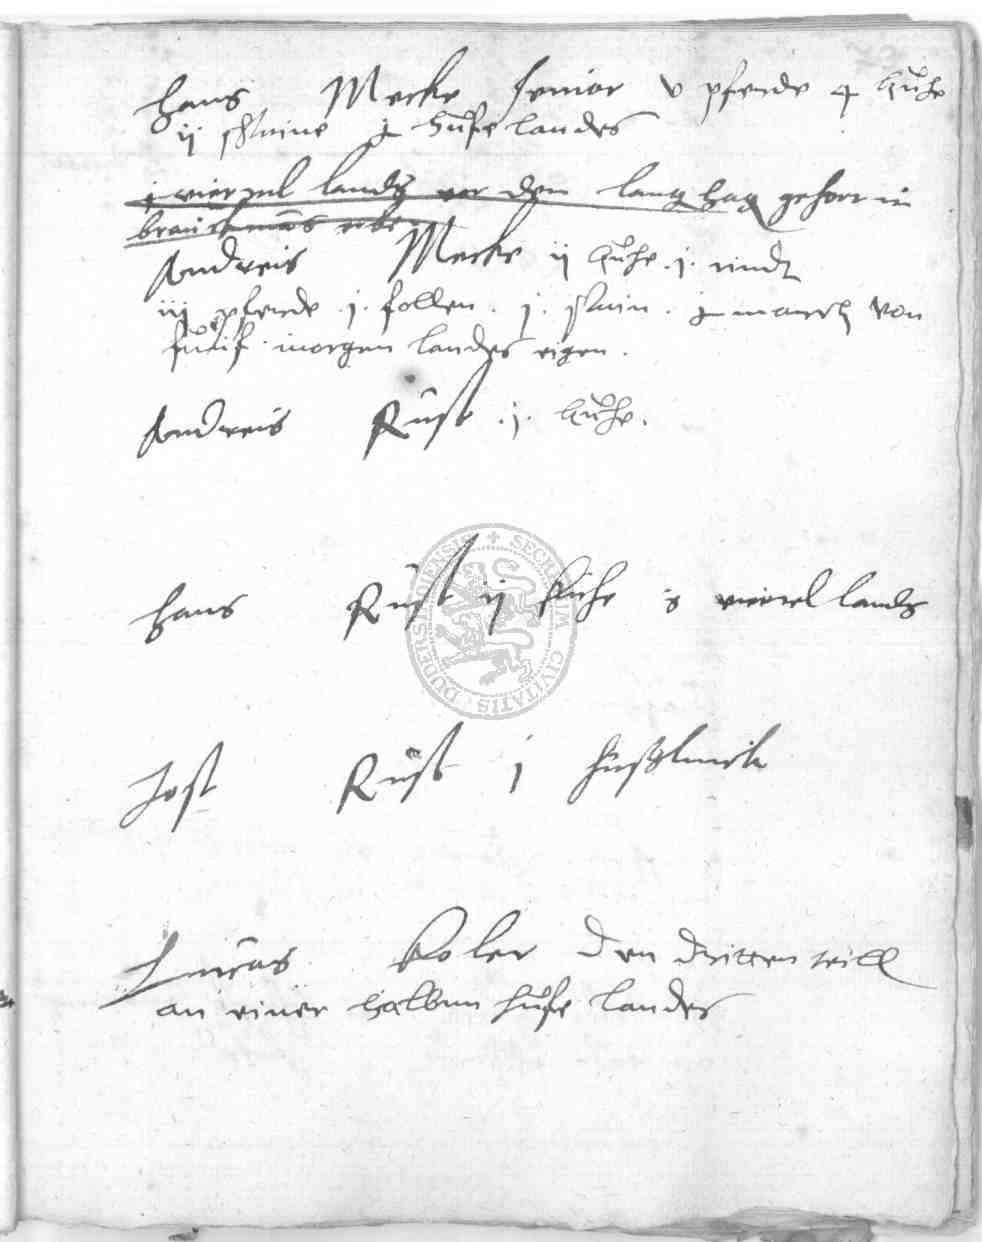 Hans Mecke senior v pferde 4 kuhe
ij schwine j hufe landes
j viertel lands vor dem lang hag gehort in
Andreis Mecke ij kuhe j rindt
iij pferde j follen j swin von
funf morgen landes eigen
Andreis Rust j kuhe
Hans Rust ij kuhe viertel lands
Jost Rust j
Lucas Koler den dritten teill
an einer halben hufe landes
SECRETUM CIVITATIS DUDERSTADIENSIS